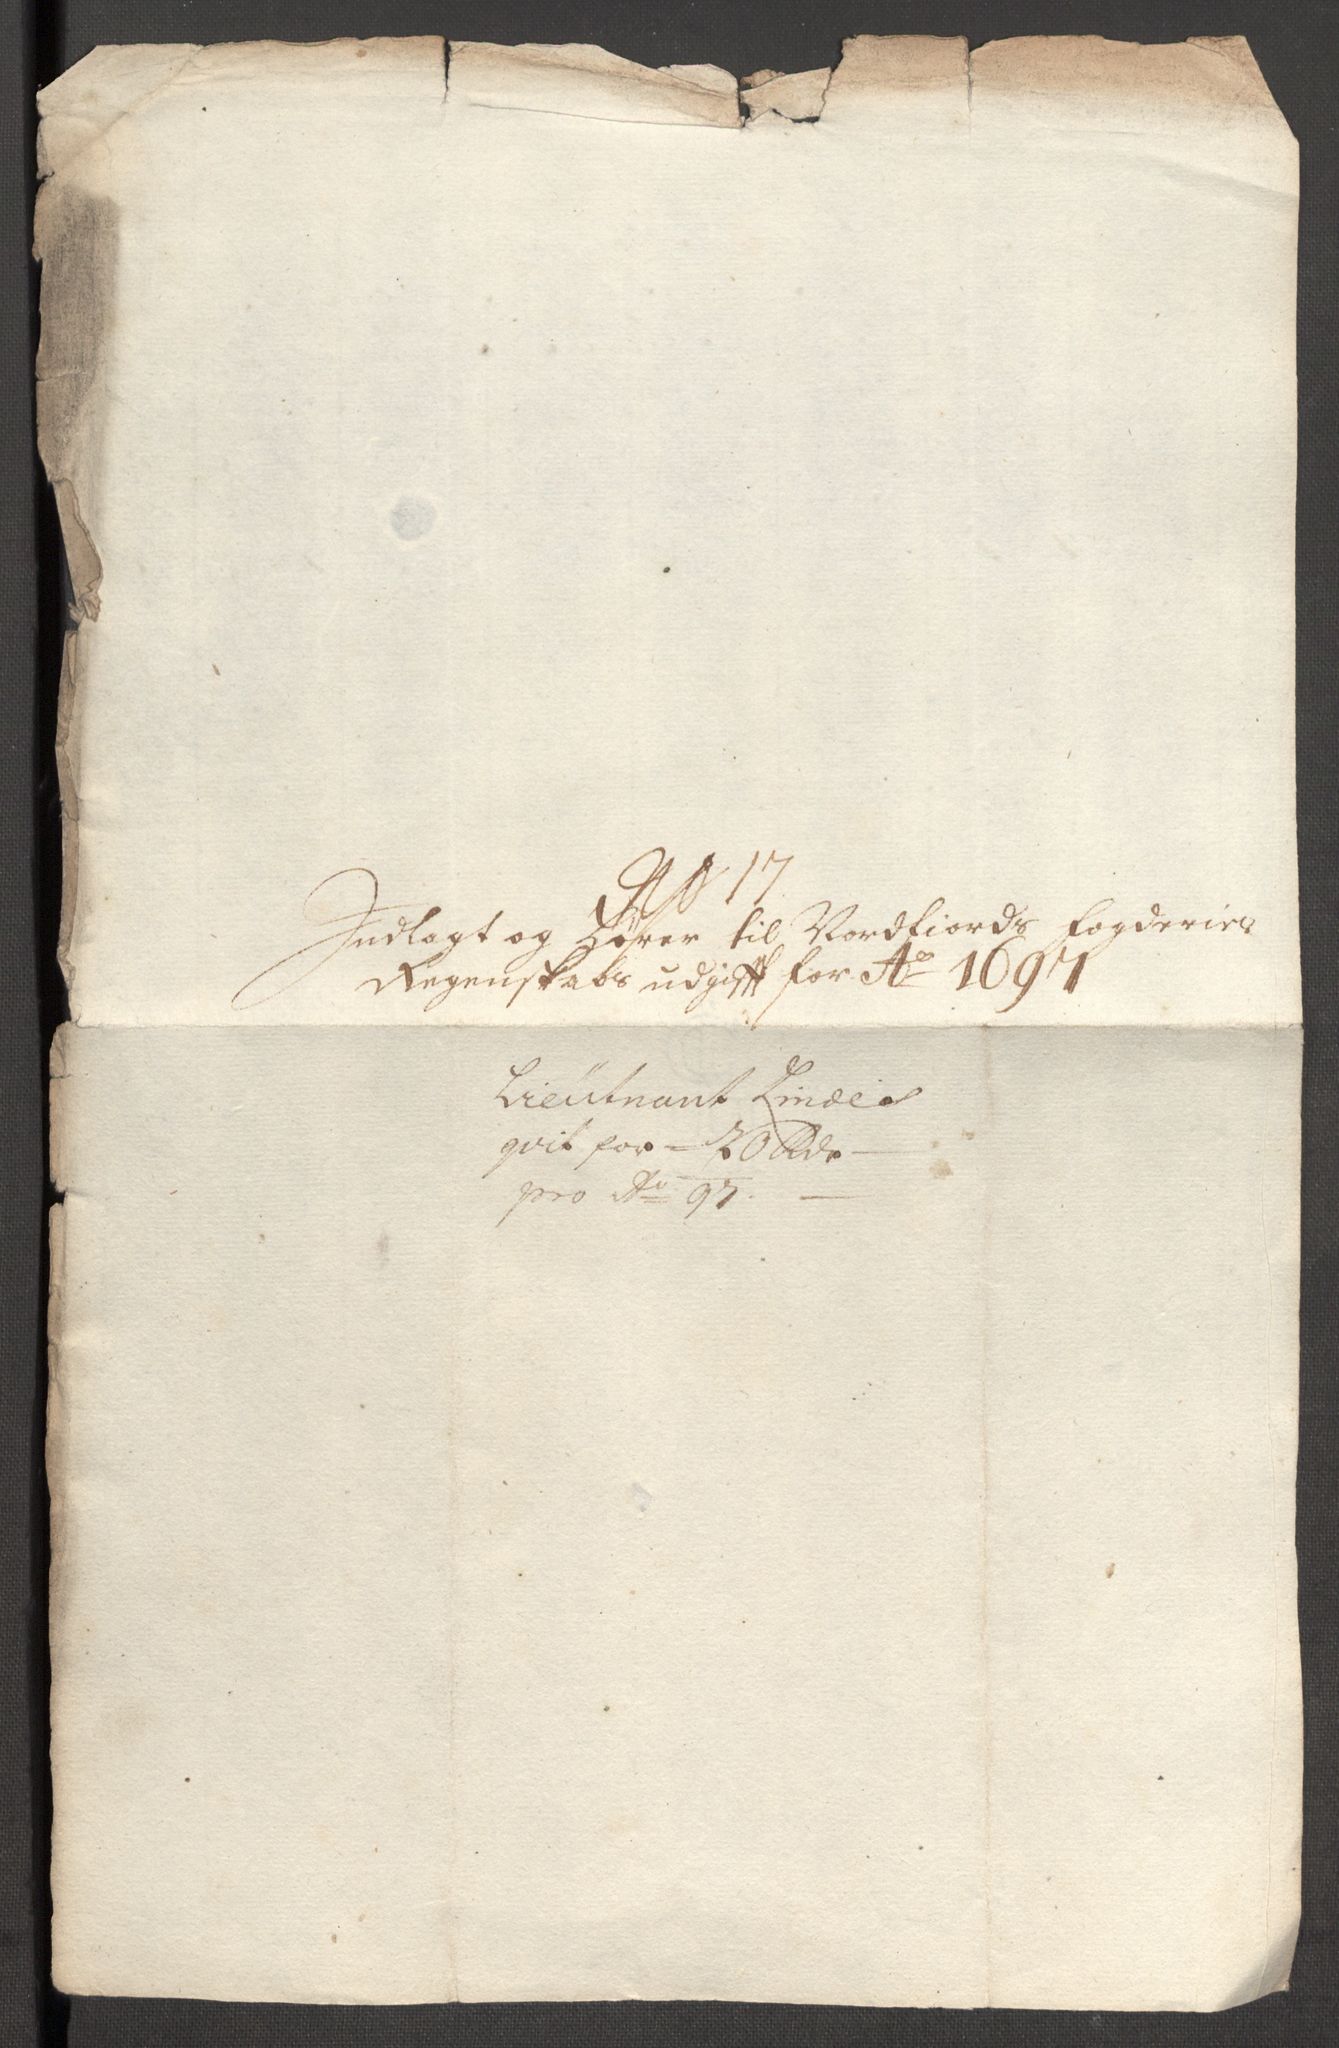 No 17
Indlagt og hører til Nordfiords fogderies
Regenskabs udgifft for Ao 1697
Lieutnant Lindes
qvit for - 20 Rdr -
pro Ao 97. -